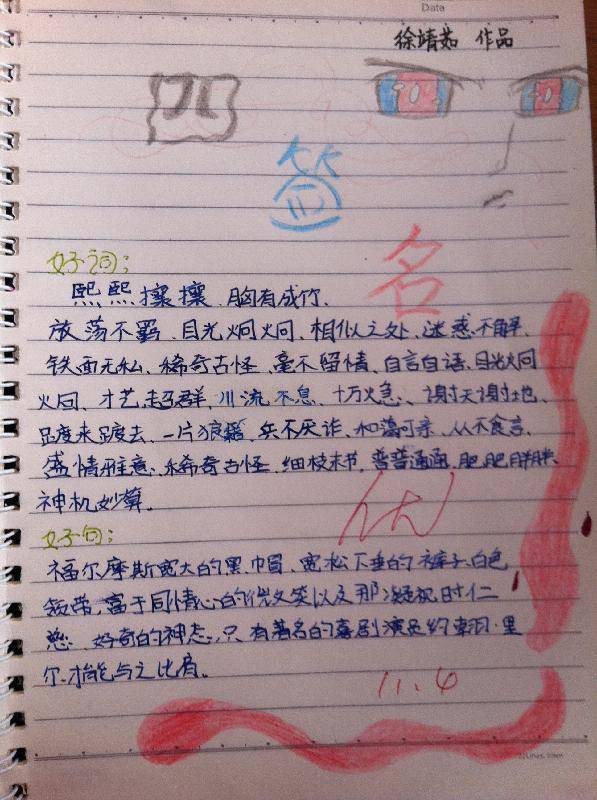 Date
徐靖茹 作品
签
名
好词：
熙熙攘攘、胸有成竹、
放荡不羁、目光炯炯、相似之处、迷惑不解、
铁面无私、稀奇古怪、毫不留情、自言自语、目光炯
炯、才艺超群、川流不息、十万火急、谢天谢地、
踱来踱去、一片狼籍、兵不厌诈、和蔼可亲、从不食言、
盛情难意、稀奇古怪、细枝末节、普普通通、肥肥胖胖、
神机妙算。
优
好句：
福尔摩斯宽大的黑帽、宽松下垂的裤子、白色
领带，富于同情心的微笑以及那凝视时仁
慈、好奇的神态，只有著名的喜剧演员约翰·里
尔才能与之比肩。
11.4